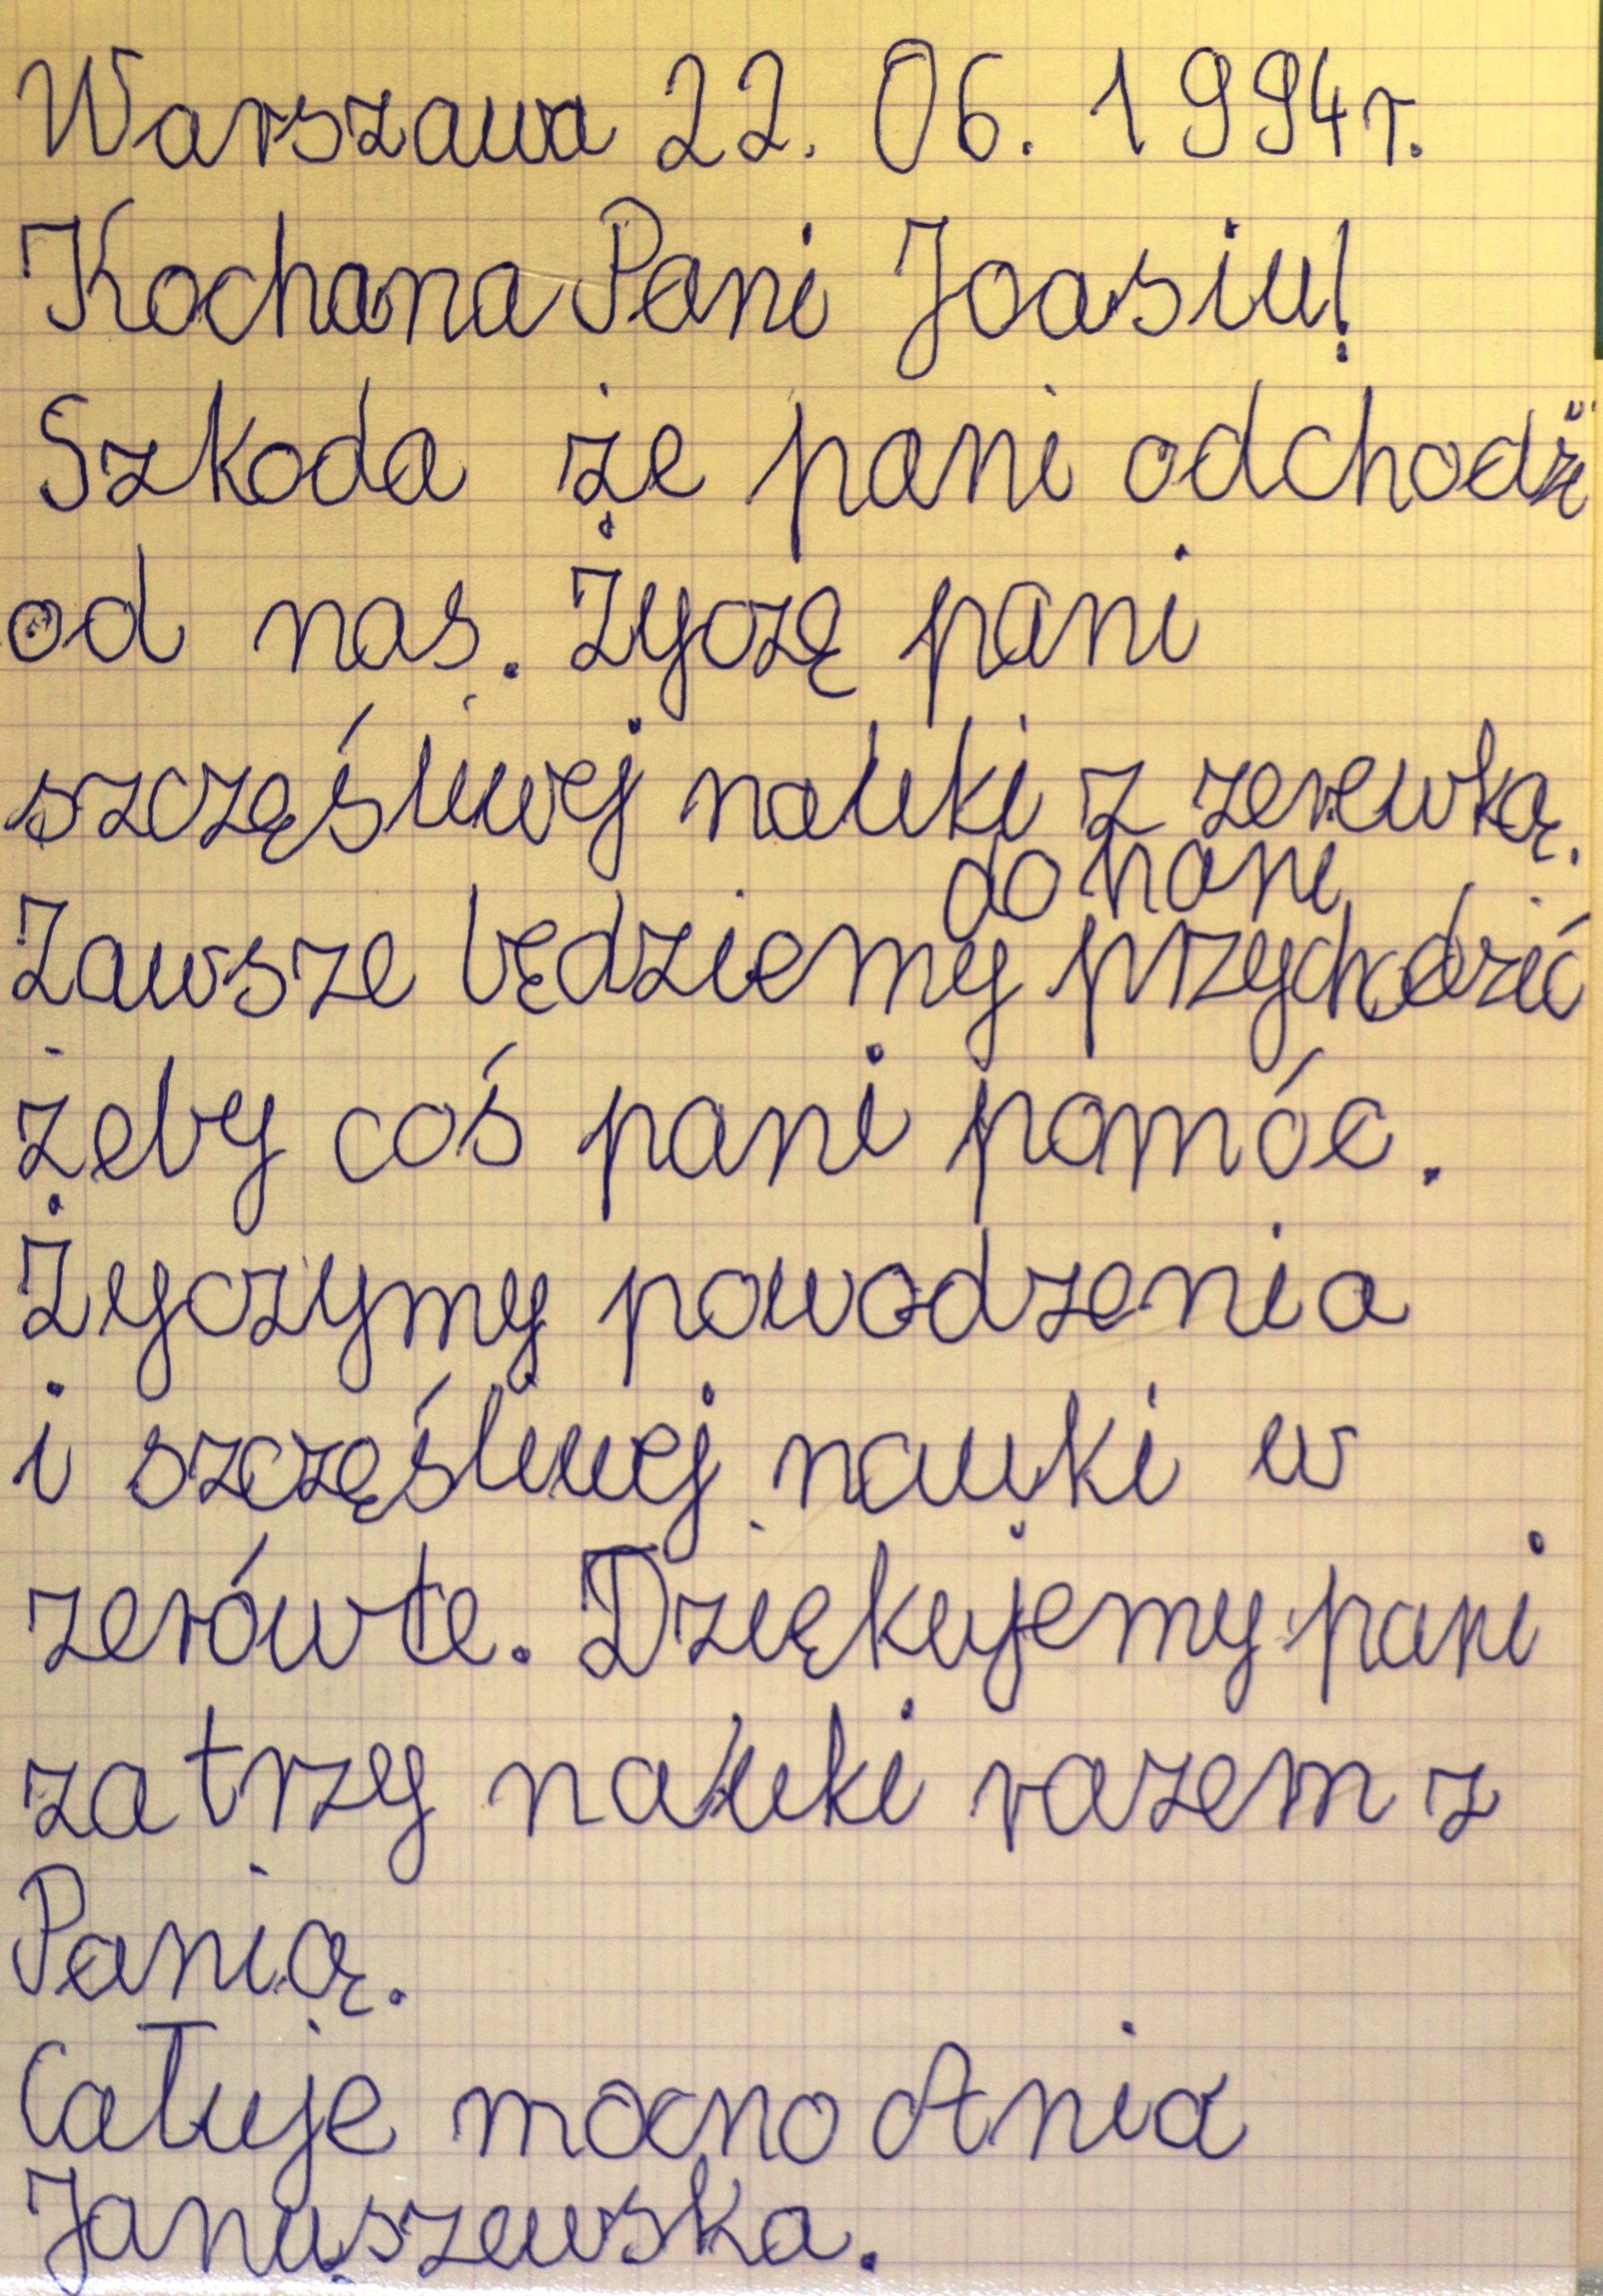 Warszawa 22. 06. 1994r.
Kochana Pani Joasiu!
Szkoda że pani odchodzi
od nas. Życzę pani
szczęśliwej nauki z zerewką.
do pani
Zawsze będziemy przychodzić
żeby coś pani pomóc.
Życzymy powodzenia
i szczęśliwej nauki w
zerówce. Dziękujemy pani
za trzy nauki razem z
Panią.
Całuje mocno Ania
Januszewska.